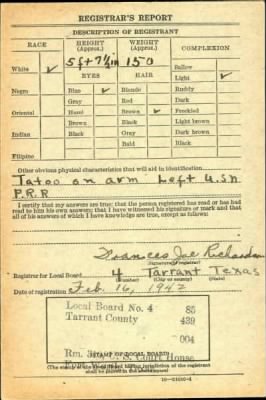 REGISTRAR'S REPORT
DESCRIPTION OF REGISTRANT
RACE HEIGHT (Approx.) WEIGHT (Approx.) COMPLEXION
5 ft 7½ in 150
White ✓ EYES HAIR Sallow
Light ✓
Negro Blue ✓ Blonde Ruddy
Gray Red Dark
Oriental Hazel Brown ✓ Freckled
Brown Black Light brown
Indian Black Gray Dark brown
Bald Black
Filipino
Other obvious physical characteristics that will aid in identification
Tatoo on arm Left U.S.N
P.R.R
I certify that my answers are true; that the person registered has read or has had
read to him his own answers; that I have witnessed his signature or mark and that
all of his answers of which I have knowledge are true, except as follows:
Frances Joe Richardson
(Signature of registrar)
Registrar for Local Board 4 Tarrant Texas
(Number) (City or county) (State)
Date of registration Feb. 16, 1942
Local Board No. 4 85
Tarrant County 439
004
(STAMP OF LOCAL BOARD)
Court House
(The stamp of the Local Board having jurisdiction of the registrant
shall be placed in the above space)